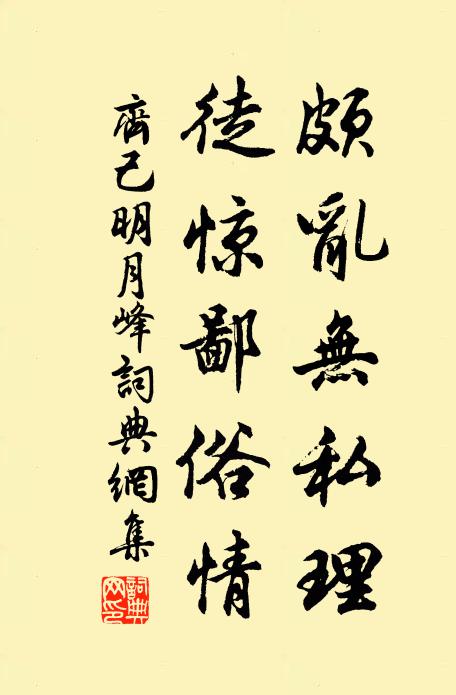 頗亂無私理
徒惊鄙俗情
齊己明月峰詞典網集
詞典网印